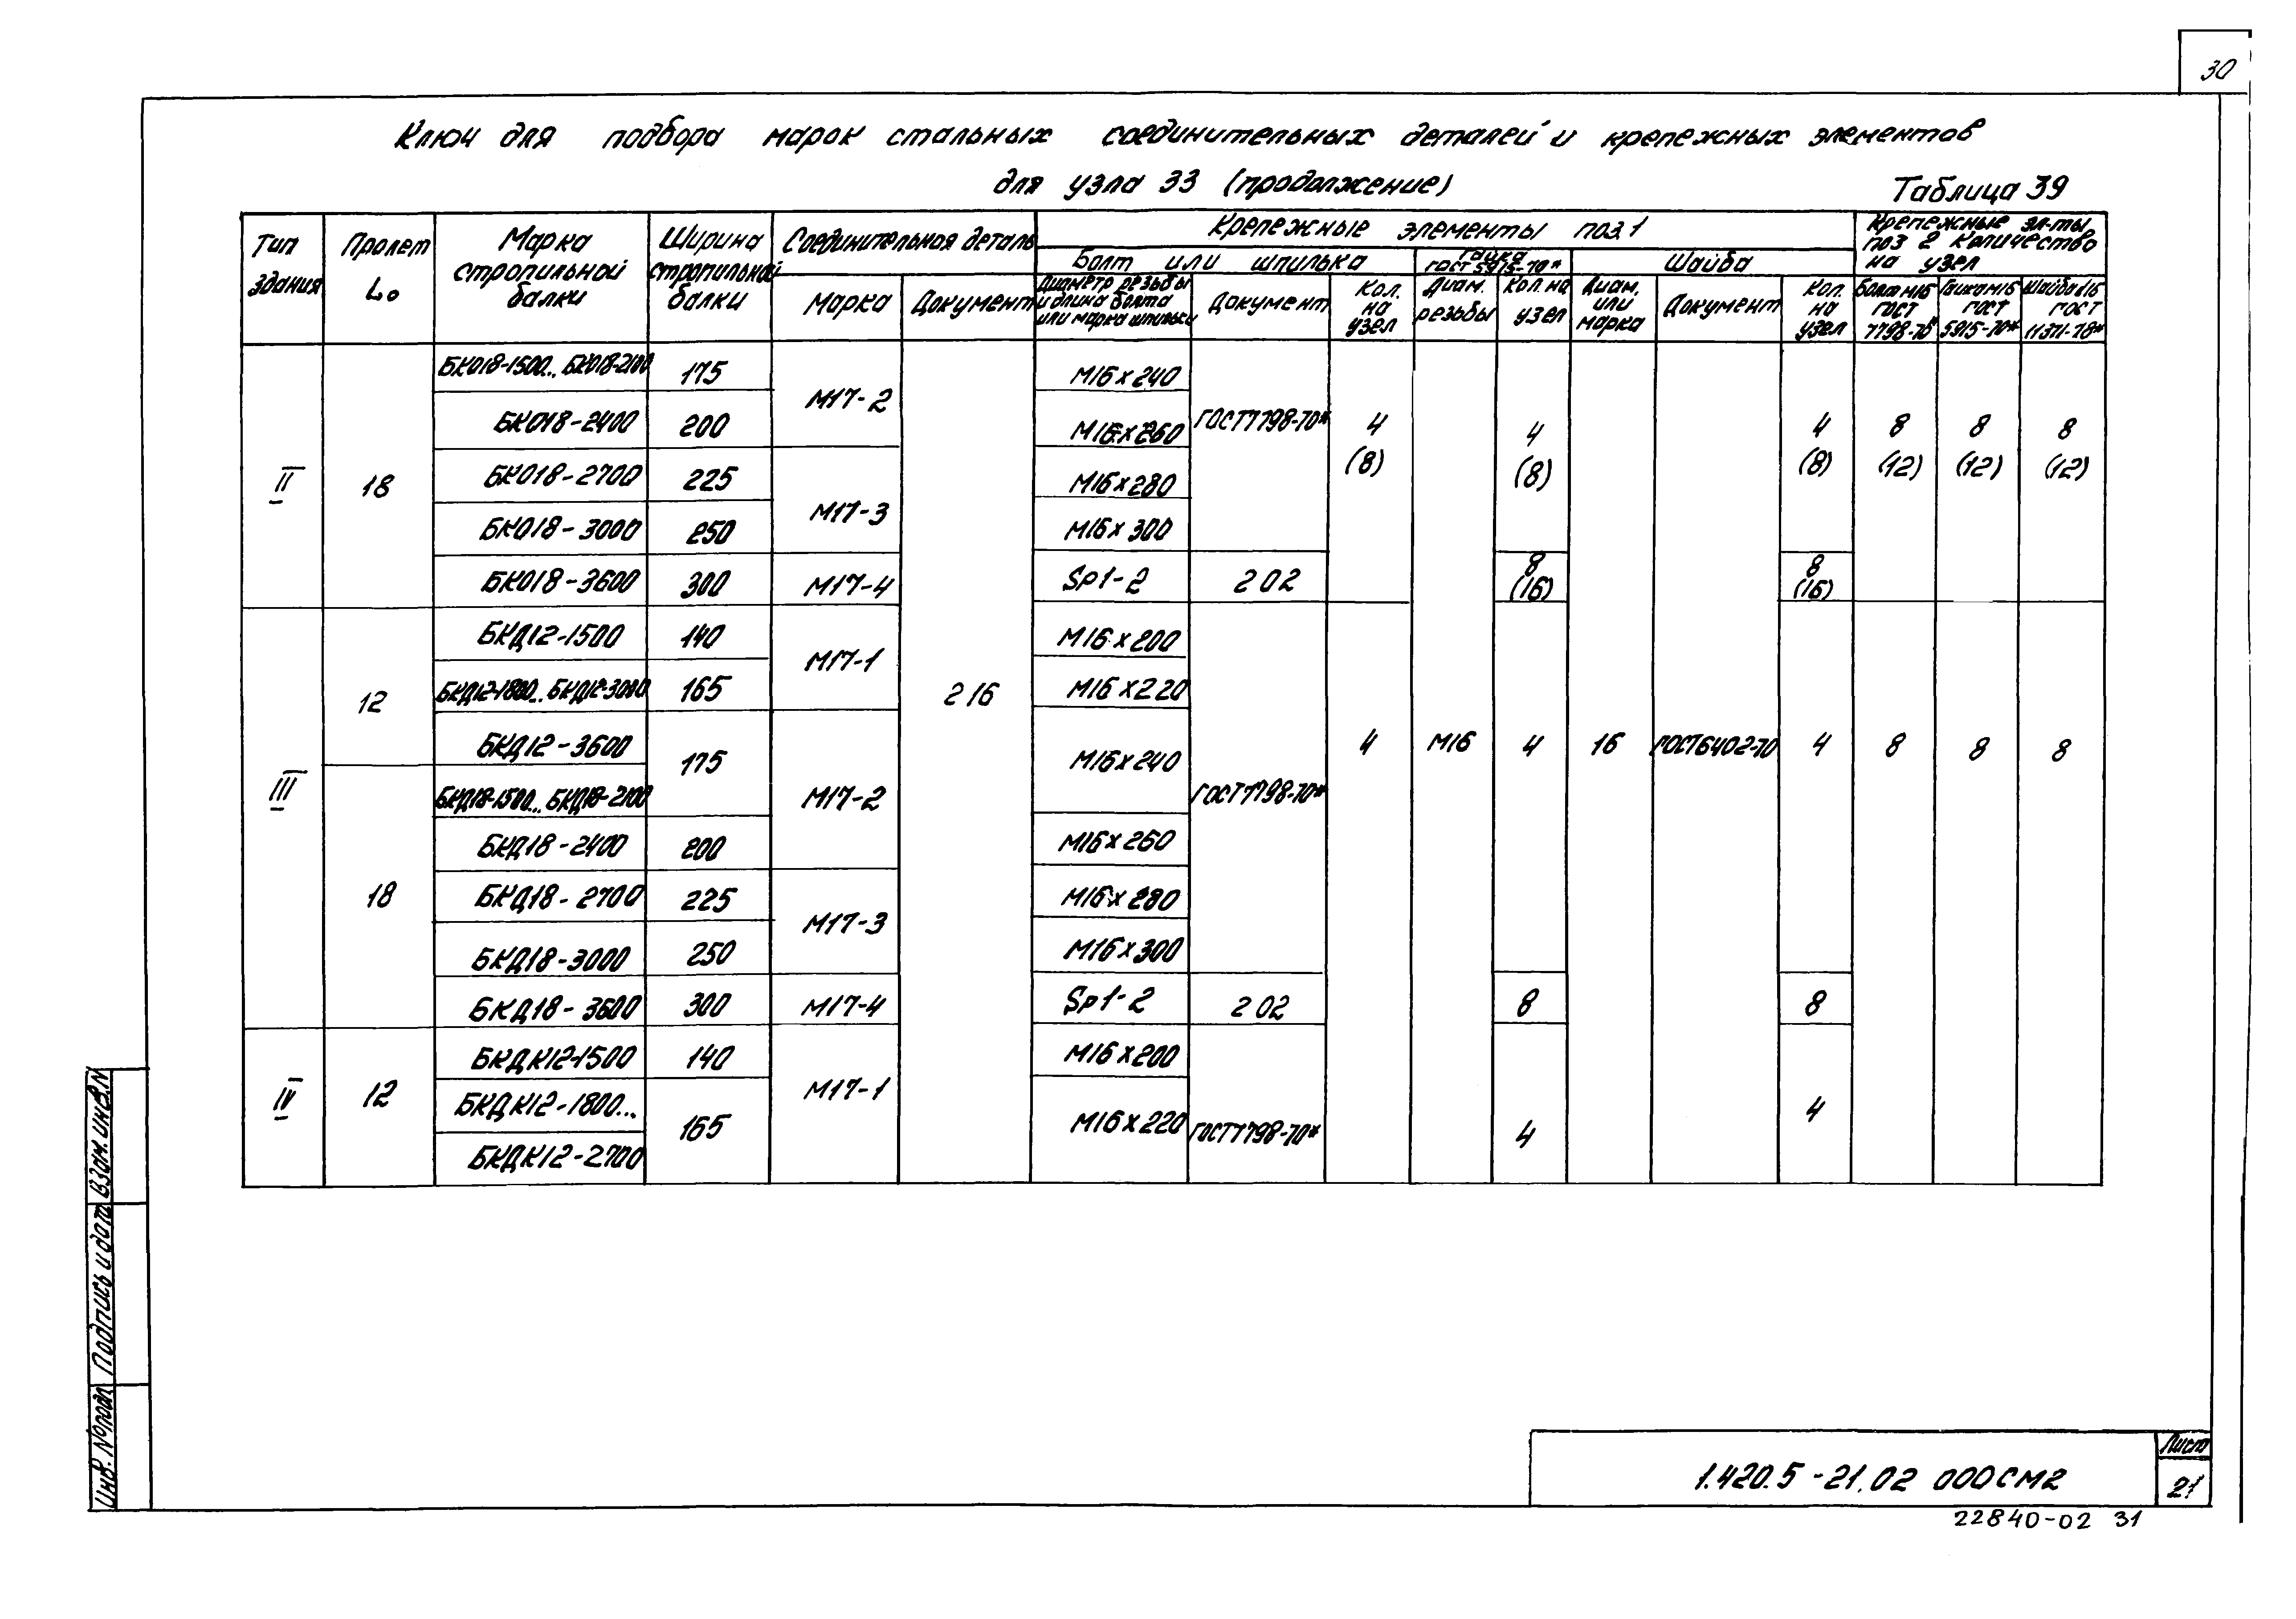 30
Ключ для подбора марок стальных соединительных деталей и крепежных элементов
для узла 33 (продолжение)
Таблица 39
Тип здания
Пролет Lo
Марка стропильной балки
Ширина стропильной балки
Соединительная деталь
Марка
Документ
Крепежные элементы поз 1
Болт или шпилька
Диаметр резьбы и длина болта или марка шпильки
Документ
Кол. на узел
Гайка ГОСТ 5915-70*
Диам. резьбы
Кол на узел
Шайба
Диам, или марка
Документ
Кол. на узел
Крепежные эл-ты поз 2 количество на узел
Болт М16 ГОСТ 7798-70*
Гайка М16 ГОСТ 5915-70*
Шайба 16 ГОСТ 11371-78*
II 18 БКО18-1500... БКО18-2100 175 М17-2 М16×240
БКО18-2400 200 М16×260 ГОСТ7798-70* 4 (8) 4 (8) 4 (8) 8 (12) 8 (12) 8 (12)
БКО18-2700 225 М17-3 М16×280
БКО18-3000 250 М16×300
БКО18-3600 300 М17-4 Sp1-2 202 8 (16) 8 (16)
III 12 БКД12-1500 140 М17-1 М16×200
БКД12-1800... БКД12-3000 165 216 М16×220
БКД12-3600 175 М16×240 4 М16 4 16 ГОСТ6402-70 4 8 8 8
18 БКД18-1500... БКД18-2100 М17-2 ГОСТ7798-70*
БКД18-2400 200 М16×260
БКД18-2700 225 М17-3 М16×280
БКД18-3000 250 М16×300
БКД18-3600 300 М17-4 Sp1-2 202 8 8
IV 12 БКДК12-1500 140 М17-1 М16×200
БКДК12-1800... 165 М16×220 ГОСТ7798-70* 4 4
БКДК12-2700
Взам. инв. N
Подпись и дата
Инв. № подл.
1.420.5-21.02 000СМ2
Лист
21
22840-02 31